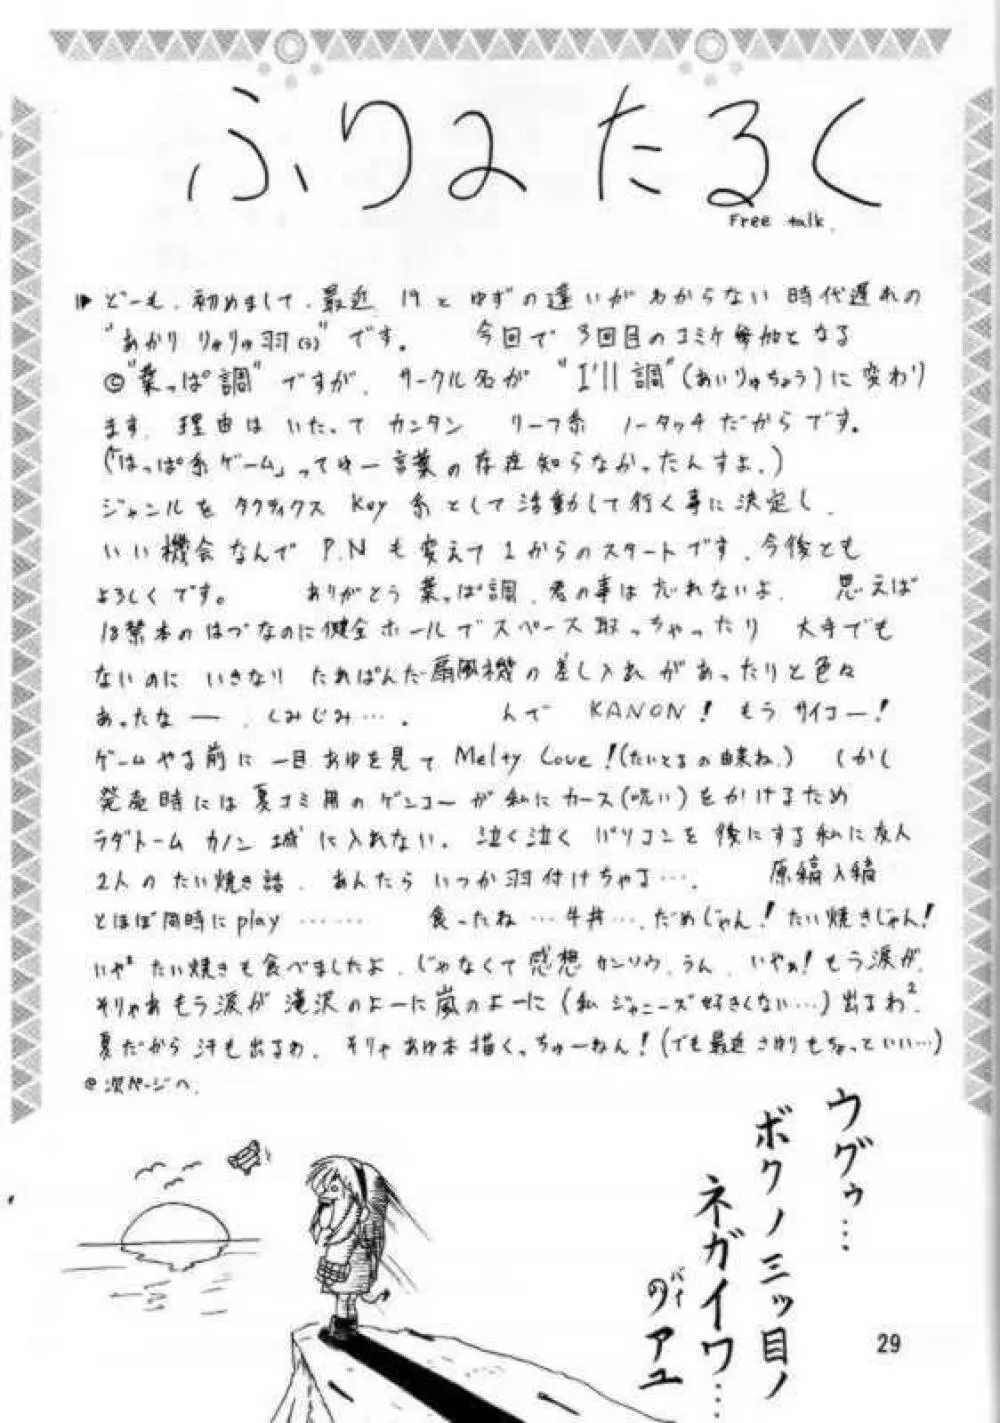 ふりーたるく
Free talk.
どーも、初めまして、最近 19 と ゆずの違いがわからない 時代遅れの
"あかり りゅりゅ羽(3)" です。 今回で 3回目のコミケ参加となる
©"葉っぱ調" ですが、サークル名が "I'll 調"(あいりゅちょう)に変わり
ます、理由は いたって カンタン リーフ系 ノータッチだからです。
(「はっぱ系ゲーム」ってゆー言葉の存在知らなかったんすよ。)
ジャンルを タクティクス Key 系として活動して行く事に決定し、
いい機会なんで P.N も変えて 1からのスタートです、今後とも
よろしくです。 ありがとう 葉っぱ調、君の事は忘れないよ、 思えば
18禁本のはづなのに健全ホールでスペース取っちゃったり 大手でも
ないのに いきなり たれぱんだ扇風機の差し入れがあったりと色々
あったなー、しみじみ…。 んで KANON! もうサイコー!
ゲームやる前に一目あゆを見て Melty Love!(たいとるの由来ね。) しかし
発売時には夏コミ用のゲンコーが私にカース(呪い)をかけるため
ラダトーム カノン 城に入れない。泣く泣く パソコンを後にする私に友人
2人のたい焼き話、あんたら いつか羽付けちゃる…。 原稿入稿
とほぼ同時に play …… 食ったね…牛丼…、だめじゃん!たい焼きじゃん!
いや² たい焼きも食べましたよ、じゃなくて感想 カンソウ、うん、いやぁ!もう涙が、
そりゃあもう涙が滝沢のよーに嵐のよーに(私 ジャニーズ好きくない…)出るわ²
夏だから汗も出るわ、そりゃあゆ本描くっちゅーねん!(でも最近さゆりもちょっといい…)
@次ページへ、
ウグゥ…
ボクノ 三ッ目ノ
ネガイワ…
バイ
のアユ
29